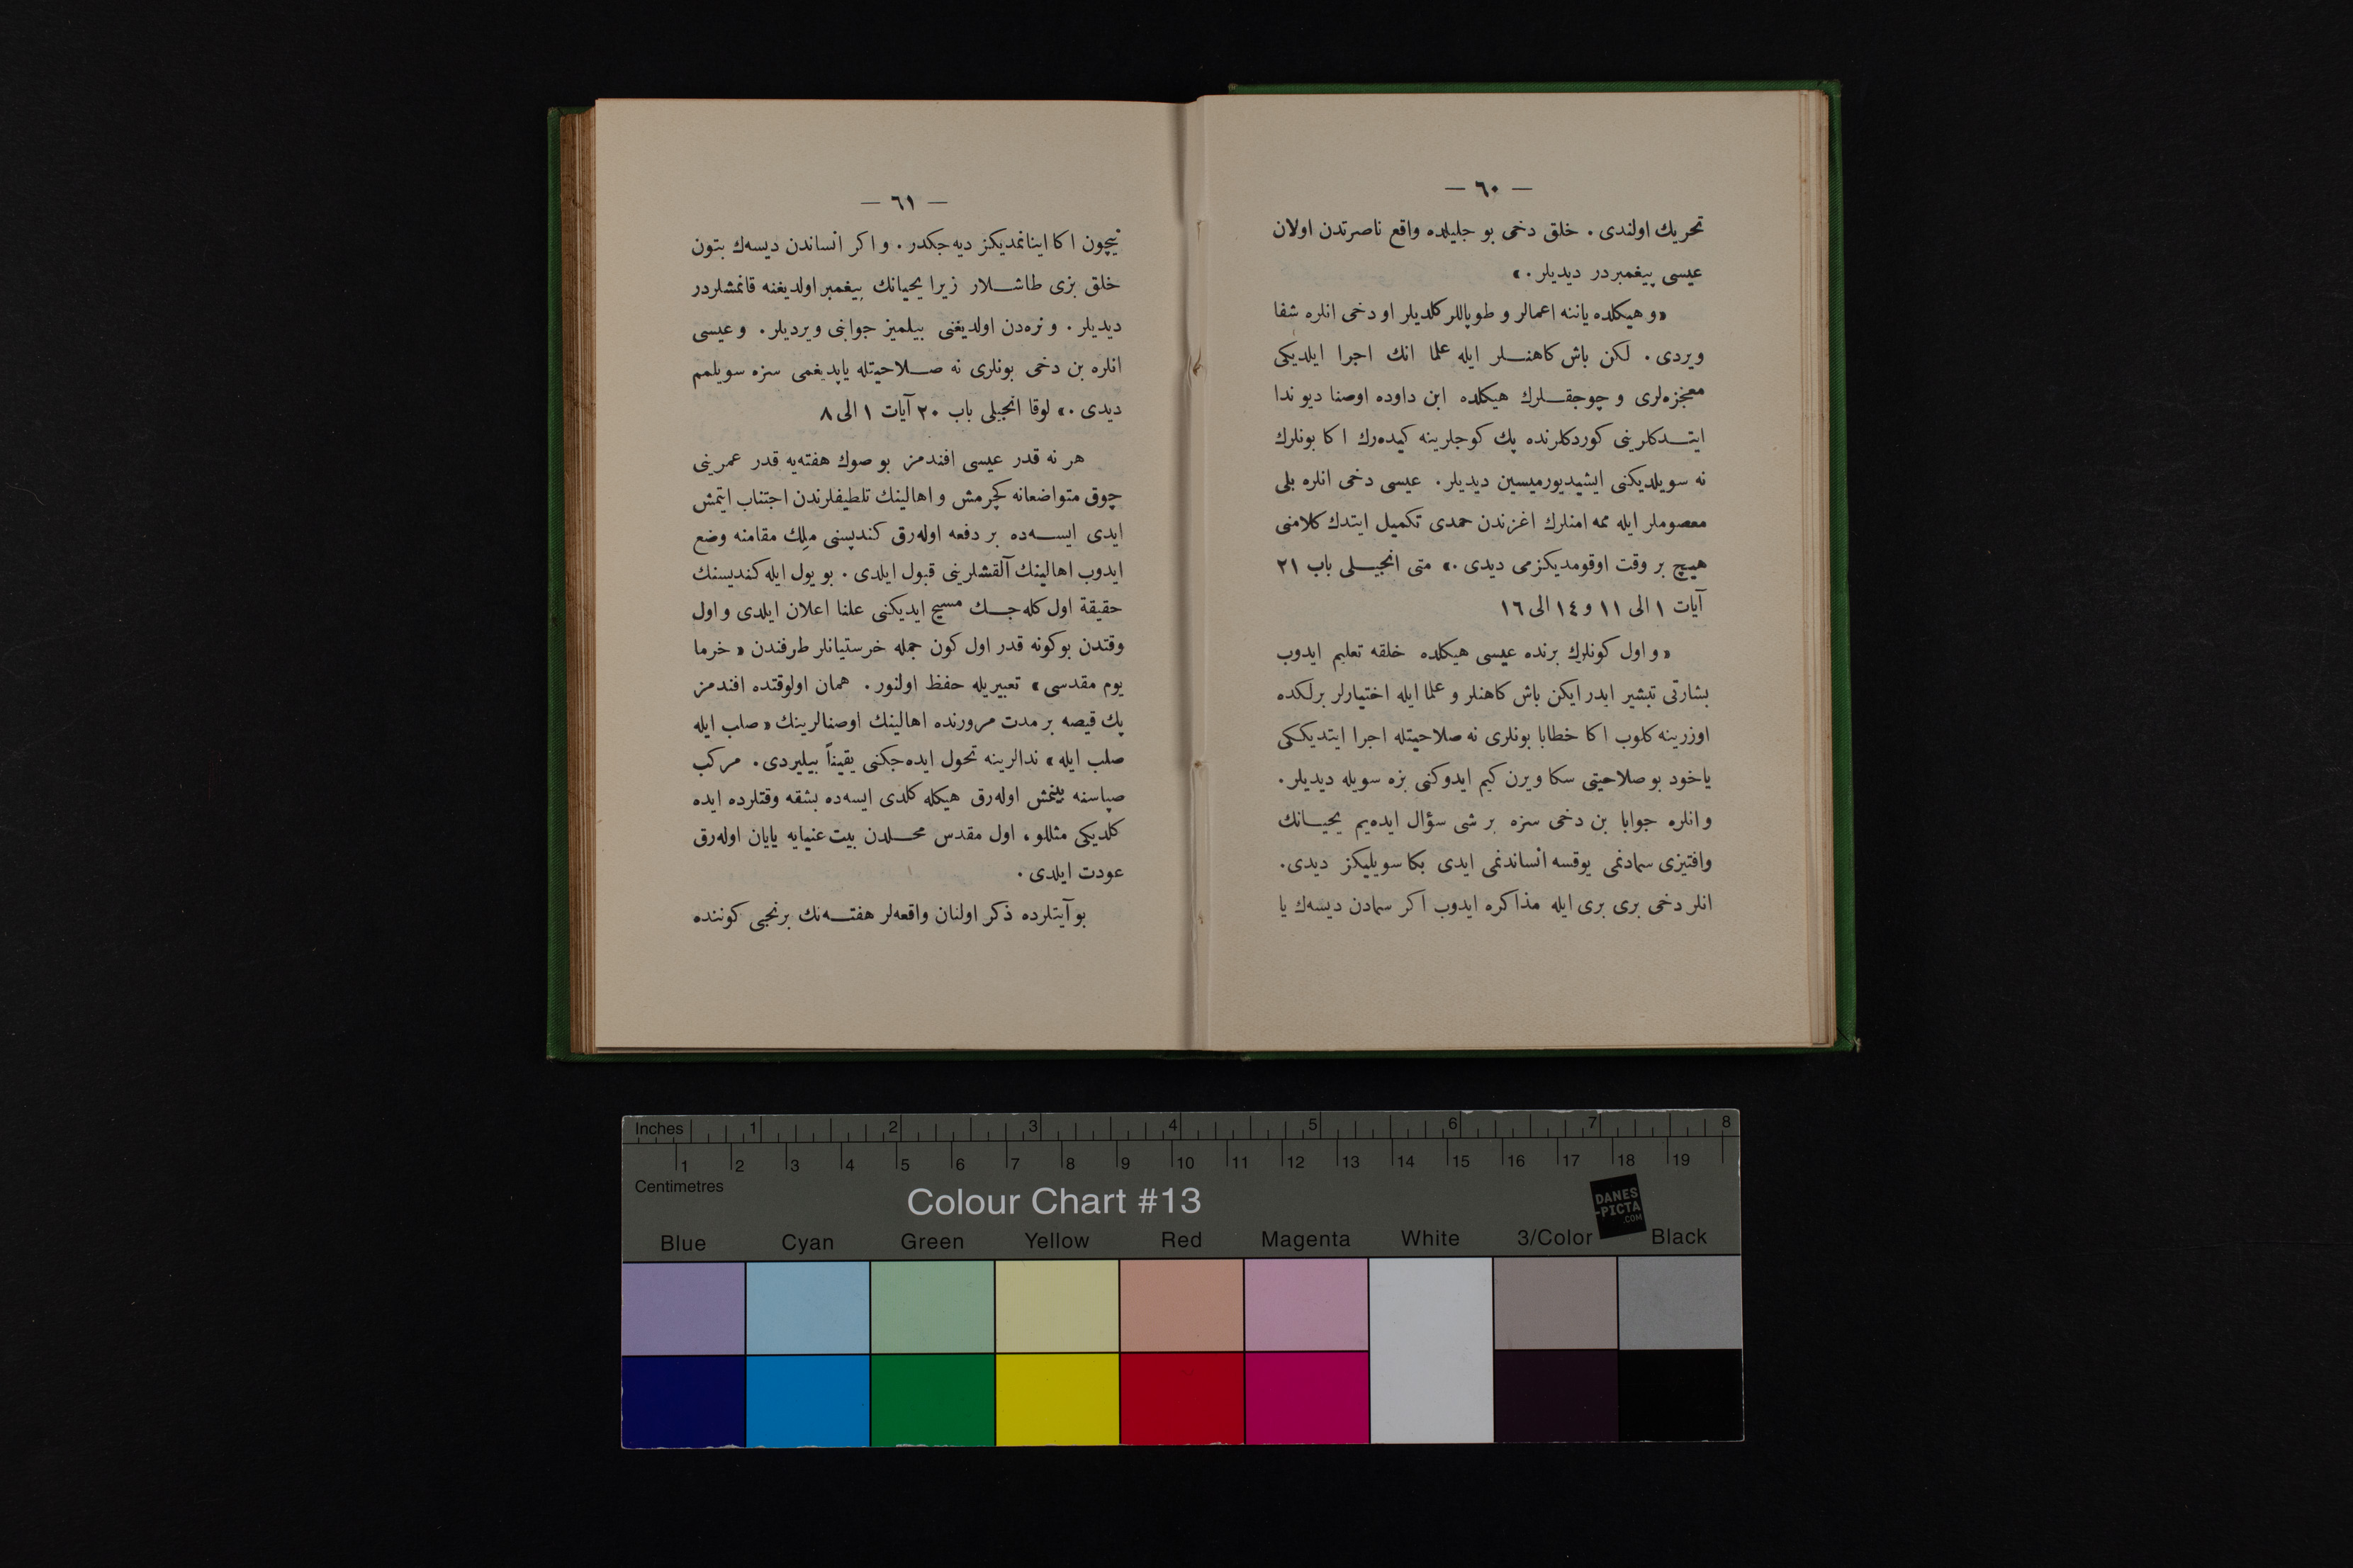 — ٦٠ —
تحریك اولندی . خلق دخی بو جلیلده واقع ناصرتدن اولان
عیسی پیغمبردر دیدیلر . »
« و هیكلده یاننه اعمالر و طوپاللر كلدیلر او دخی انلره شفا
ویردی . لكن باش كاهنلر ایله علما انك اجرا ایلدیكی
معجزه‌لری و چوجقلرك هیكلده ابن داوده اوصنا دیو ندا
ایتدكلرینی كوردكلرنده پك كوجلرینه كیده‌رك اكا بونلرك
نه سویلدیكنی ایشیدیورمیسین دیدیلر . عیسی دخی انلره بلی
معصوملر ایله ممه امنلرك اغزندن حمدی تكمیل ایتدك كلامنی
هیچ بر وقت اوقومدیكزمی دیدی . » متی انجیلی باب ٢١
آیات ١ الی ١١ و ١٤ الی ١٦
« و اول كونلرك برنده عیسی هیكلده خلقه تعلیم ایدوب
بشارتی تبشیر ایدر ایكن باش كاهنلر و علما ایله اختیارلر برلكده
اوزرینه كلوب اكا خطابا بونلری نه صلاحیتله اجرا ایتدیككی
یاخود بو صلاحیتی سكا ویرن كیم ایدوكنی بزه سویله دیدیلر .
و انلره جوابا بن دخی سزه بر شی سؤال ایده‌یم یحیانك
وافتیزی سمادنمی یوقسه انساندنمی ایدی بكا سویلیكز دیدی .
انلر دخی بری بری ایله مذاكره ایدوب اكر سمادن دیسه‌ك یا
— ٦١ —
نیچون اكا اینانمدیكز دیه‌جكدر . و اكر انساندن دیسه‌ك بتون
خلق بزی طاشلار زیرا یحیانك پیغمبر اولدیغنه قانمشلردر
دیدیلر . و نره‌دن اولدیغنی بیلمیز جوابنی ویردیلر . و عیسی
انلره بن دخی بونلری نه صلاحیتله یاپدیغمی سزه سویلمم
دیدی . » لوقا انجیلی باب ٢٠ آیات ١ الی ٨
هر نه قدر عیسی افندمز بو صوك هفته‌یه قدر عمرینی
چوق متواضعانه كچرمش و اهالینك تلطیفلرندن اجتناب ایتمش
ایدی ایسه‌ده بر دفعه اوله‌رق كندیسنی ملِك مقامنه وضع
ایدوب اهالینك آلقشلرینی قبول ایلدی . بو یول ایله كندیسنك
حقیقة اول كله‌جك مسیح ایدیكنی علنا اعلان ایلدی و اول
وقتدن بوكونه قدر اول كون جمله خرستیانلر طرفندن « خرما
یوم مقدسی » تعبیریله حفظ اولنور . همان اولوقتده افندمز
پك قیصه بر مدت مرورنده اهالینك اوصنالرینك « صلب ایله
صلب ایله » ندالرینه تحول ایده‌جكنی یقیناً بیلیردی . مركب
صپاسنه بینمش اوله‌رق هیكله كلدی ایسه‌ده بشقه وقتلرده ایده
كلدیكی مثللو ، اول مقدس محلدن بیت عنیایه یایان اوله‌رق
عودت ایلدی .
بو آیتلرده ذكر اولنان واقعه‌لر هفته‌نك برنجی كوننده
Inches 1 2 3 4 5 6 7 8
1 2 3 4 5 6 7 8 9 10 11 12 13 14 15 16 17 18 19
Centimetres
Colour Chart #13
DANES
-PICTA
.COM
Blue Cyan Green Yellow Red Magenta White 3/Color Black